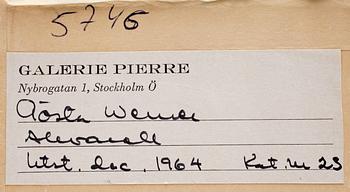 5746
GALERIE PIERRE
Nybrogatan 1, Stockholm Ö
Gösta Werner
Utst. dec. 1964 Kat. nr 23